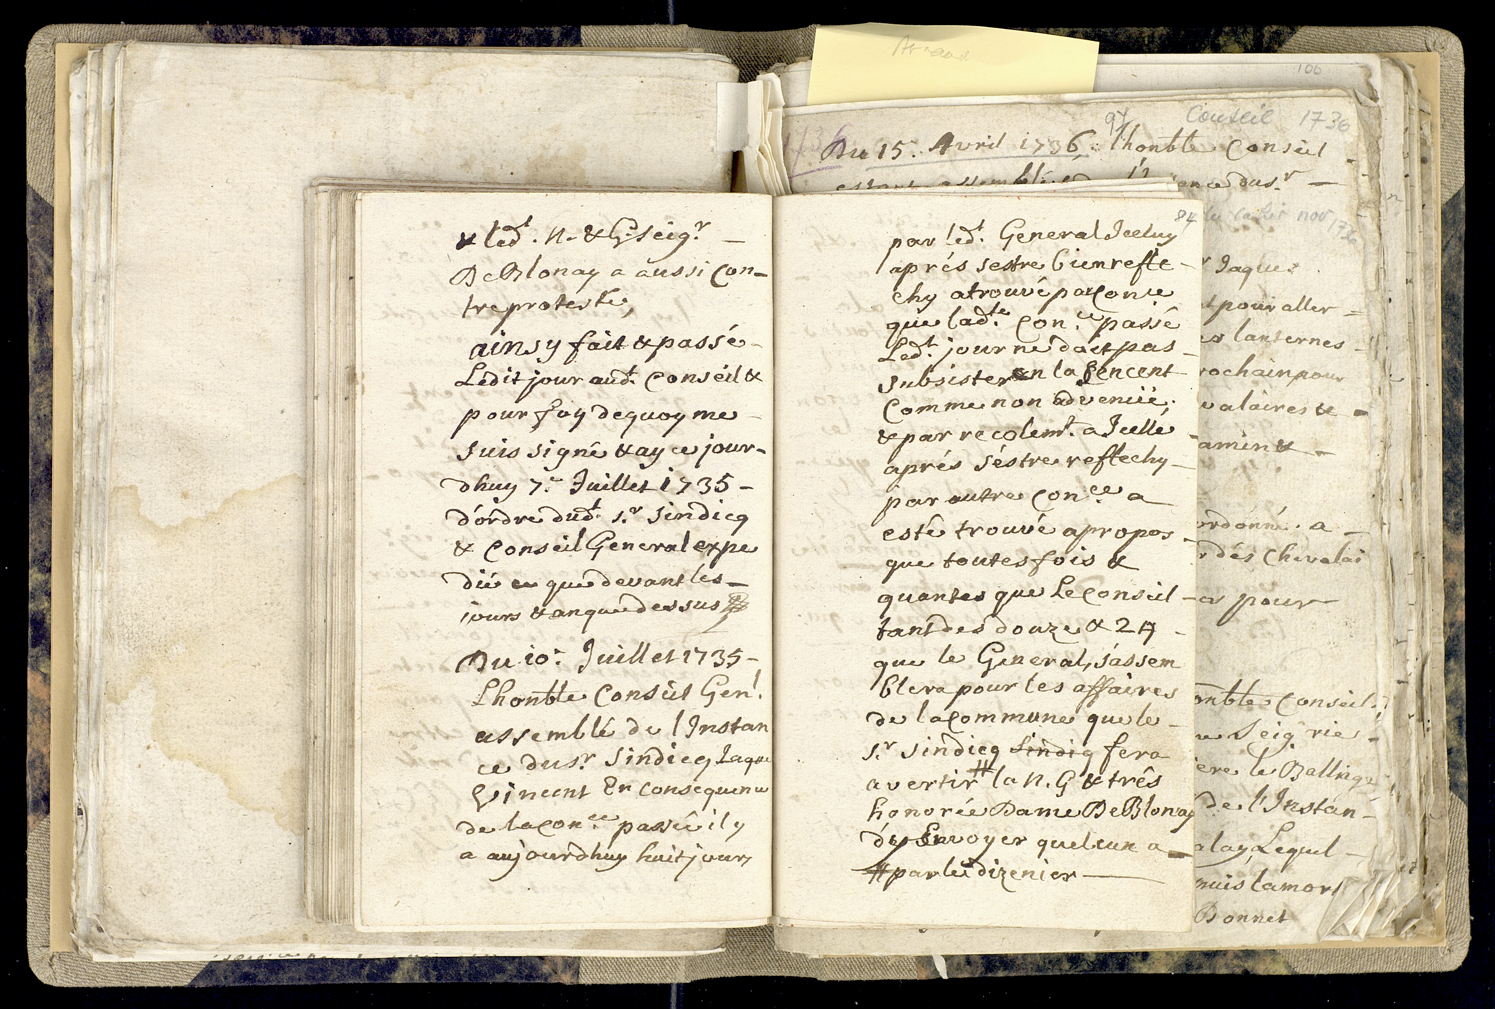 & led.t N. & G. seig.r
De Blonay a aussi con-
tre protesté,
ainsy fait & passé
Ledit jour aud.t Conséil &
pour foy dequoy me
suis signé & ay ce jour-
dhuy 7.e Juillet 1735-
d'ordre dud.t s.r Sindicq
& Conseil General expe
dié que devant les
jours & an que dessus
Du 10.e Juillet 1735-
Lhonble Conseil Gen.l
assemblé de l'Instan
ce du s.r Sindicq Jaque
Vincent En consequence
de la con.ce passée il y
a aujourdhuy huit jours
84
par led.t General Jcelluy
aprés sestre bien refle-
chy a trouvé par con.ce
que lad.te Con.ce passé
Led.t jour ne doit pas
subsister
Comme non advenüe,
& par recolem.t a Jcelle
aprés séstre reflechy
par autre con.ce a
esté trouvé apropos
que toutesfois &
quantes que Le Conseil
tant des douze & 24
que le General, s'assem
blera pour les affaires
de la Commune que le
s.r sindicq sindiq fera
avertir # la N. G & trés
honorée Dame De Blonay
d'y Envoyer quelcun a
# par le dizenier
Conseil 1736
97
106
Du 15. Avril 1736, lhonble Conseil
r Jaques
t pour aller
lanternes
rochain pour
valaires &
ordonné. a
dés Chevalai
pour
onble Conseil
Seig.rie
ere le Ballinge
de l'Instan-
alay Lequel
nuis la mort
Bonnet